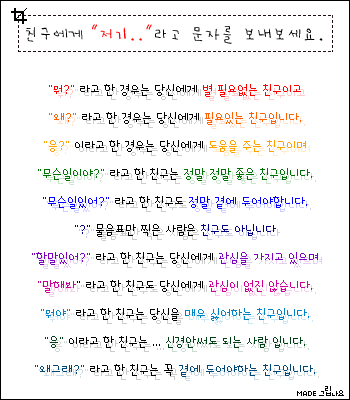 친구에게 "저기.."라고 문자를 보내보세요.
"뭔?" 라고 한 경우는 당신에게 별 필요없는 친구이고
"왜?" 라고 한 경우는 당신에게 필요있는 친구입니다.
"응?" 이라고 한 경우는 당신에게 도움을 주는 친구이며
"무슨일이야?" 라고 한 친구는 정말 정말 좋은 친구입니다.
"무슨일있어?" 라고 한 친구도 정말 곁에 두어야합니다.
"?" 물음표만 찍은 사람은 친구도 아닙니다.
"할말있어?" 라고 한 친구는 당신에게 관심을 가지고 있으며
"말해봐" 라고 한 친구도 당신에게 관심이 없진 않습니다.
"뭔야" 라고 한 친구는 당신을 매우 싫어하는 친구입니다.
"응" 이라고 한 친구는 ... 신경안써도 되는 사람 입니다.
"왜그래?" 라고 한 친구는 꼭 곁에 두어야하는 친구입니다.
MADE